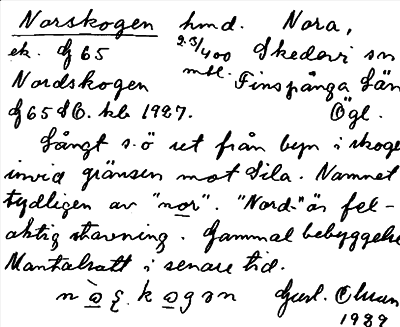 Norskogen hmd. Nora,
ek. Jf 65 2.3/400 Skedevi sn
Nordskogen mtl. Finspånga Län
Jf 65 SÖ. kb 1927. Ögl.
Långt s.ö ut från byn i skoge
invid gränsen mot Sila. Namnet
tydligen av "nor". "Nord-" är fel-
aktig stavning. Gammal bebyggelse
Mantalsatt i senare tid.
Gerl. Ohlson
1929